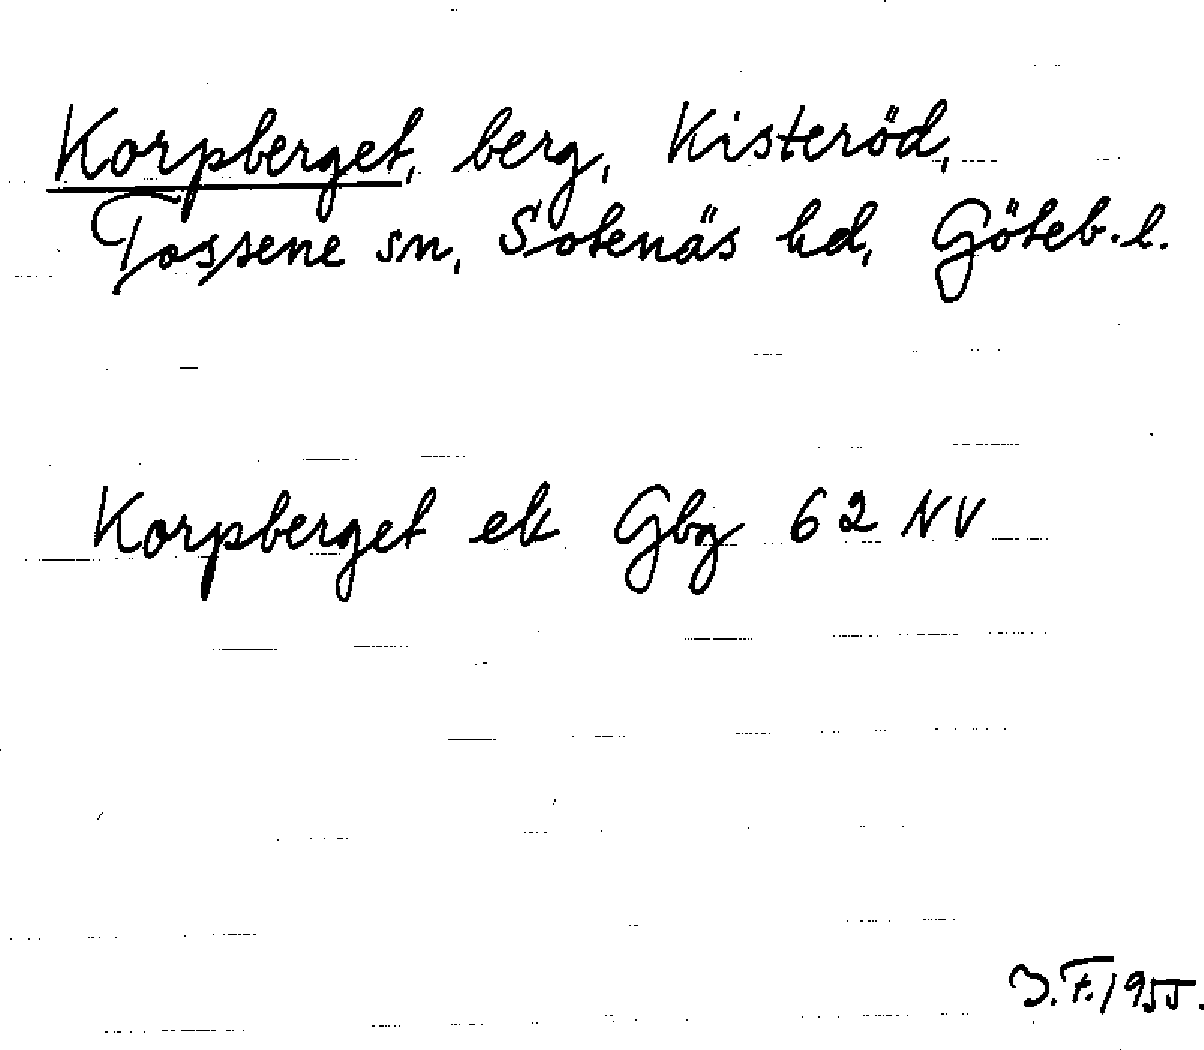 Korpberget, berg, Kisteröd,
Tossene sn, Sotenäs hd, Göteb. l.
Korpberget ek Gbg 62 NV
J.F. 1955.